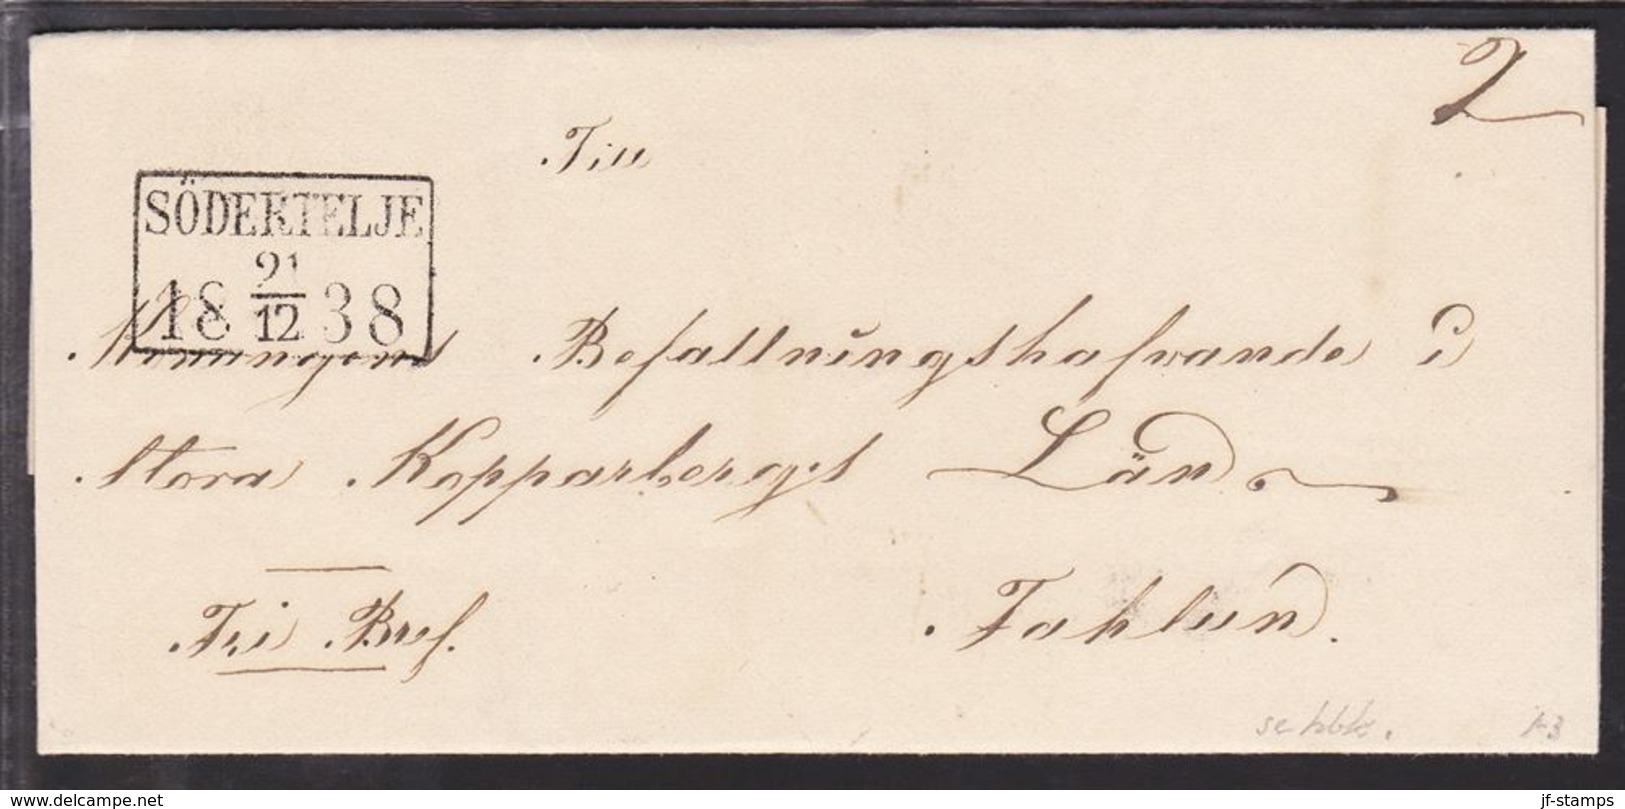 2
Till
SÖDERTELJE
21
18 12 38
Konungens Befallningshafvande i
Stora Kopparbergs Län
Fahlun.
Fri Bref.
www.delcampe.net
jf-stamps